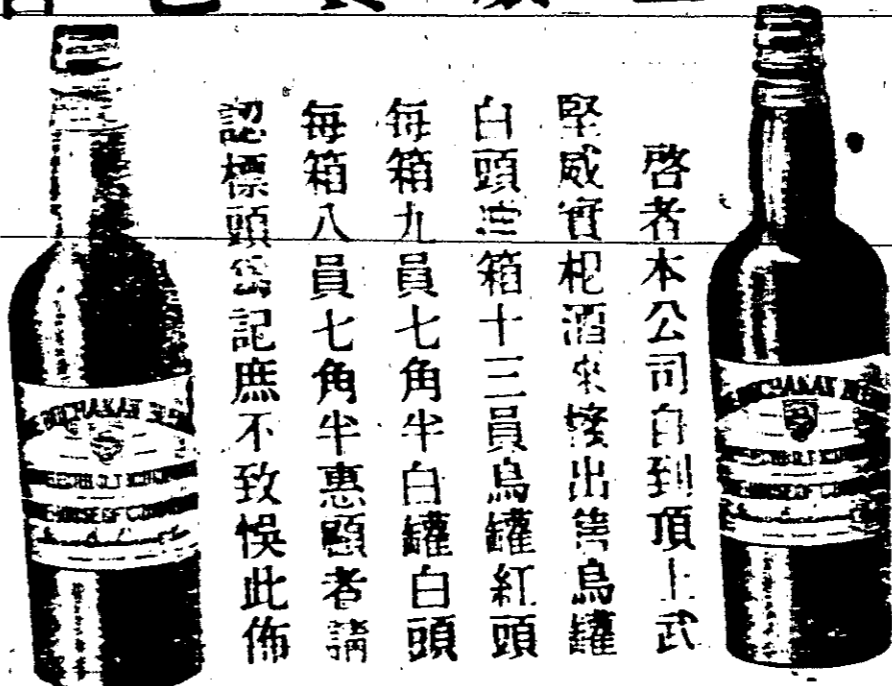 啓者本公司自到頂上武
堅威實杞酒來出售烏罐
白頭每箱十三員烏罐紅頭
每箱九員七角半白罐白頭
每箱八員七角半惠顧者請
認標頭爲記庶不致悞此佈
BUCHANAN
HOUSE OF
BUCHANAN
HOUSE OF